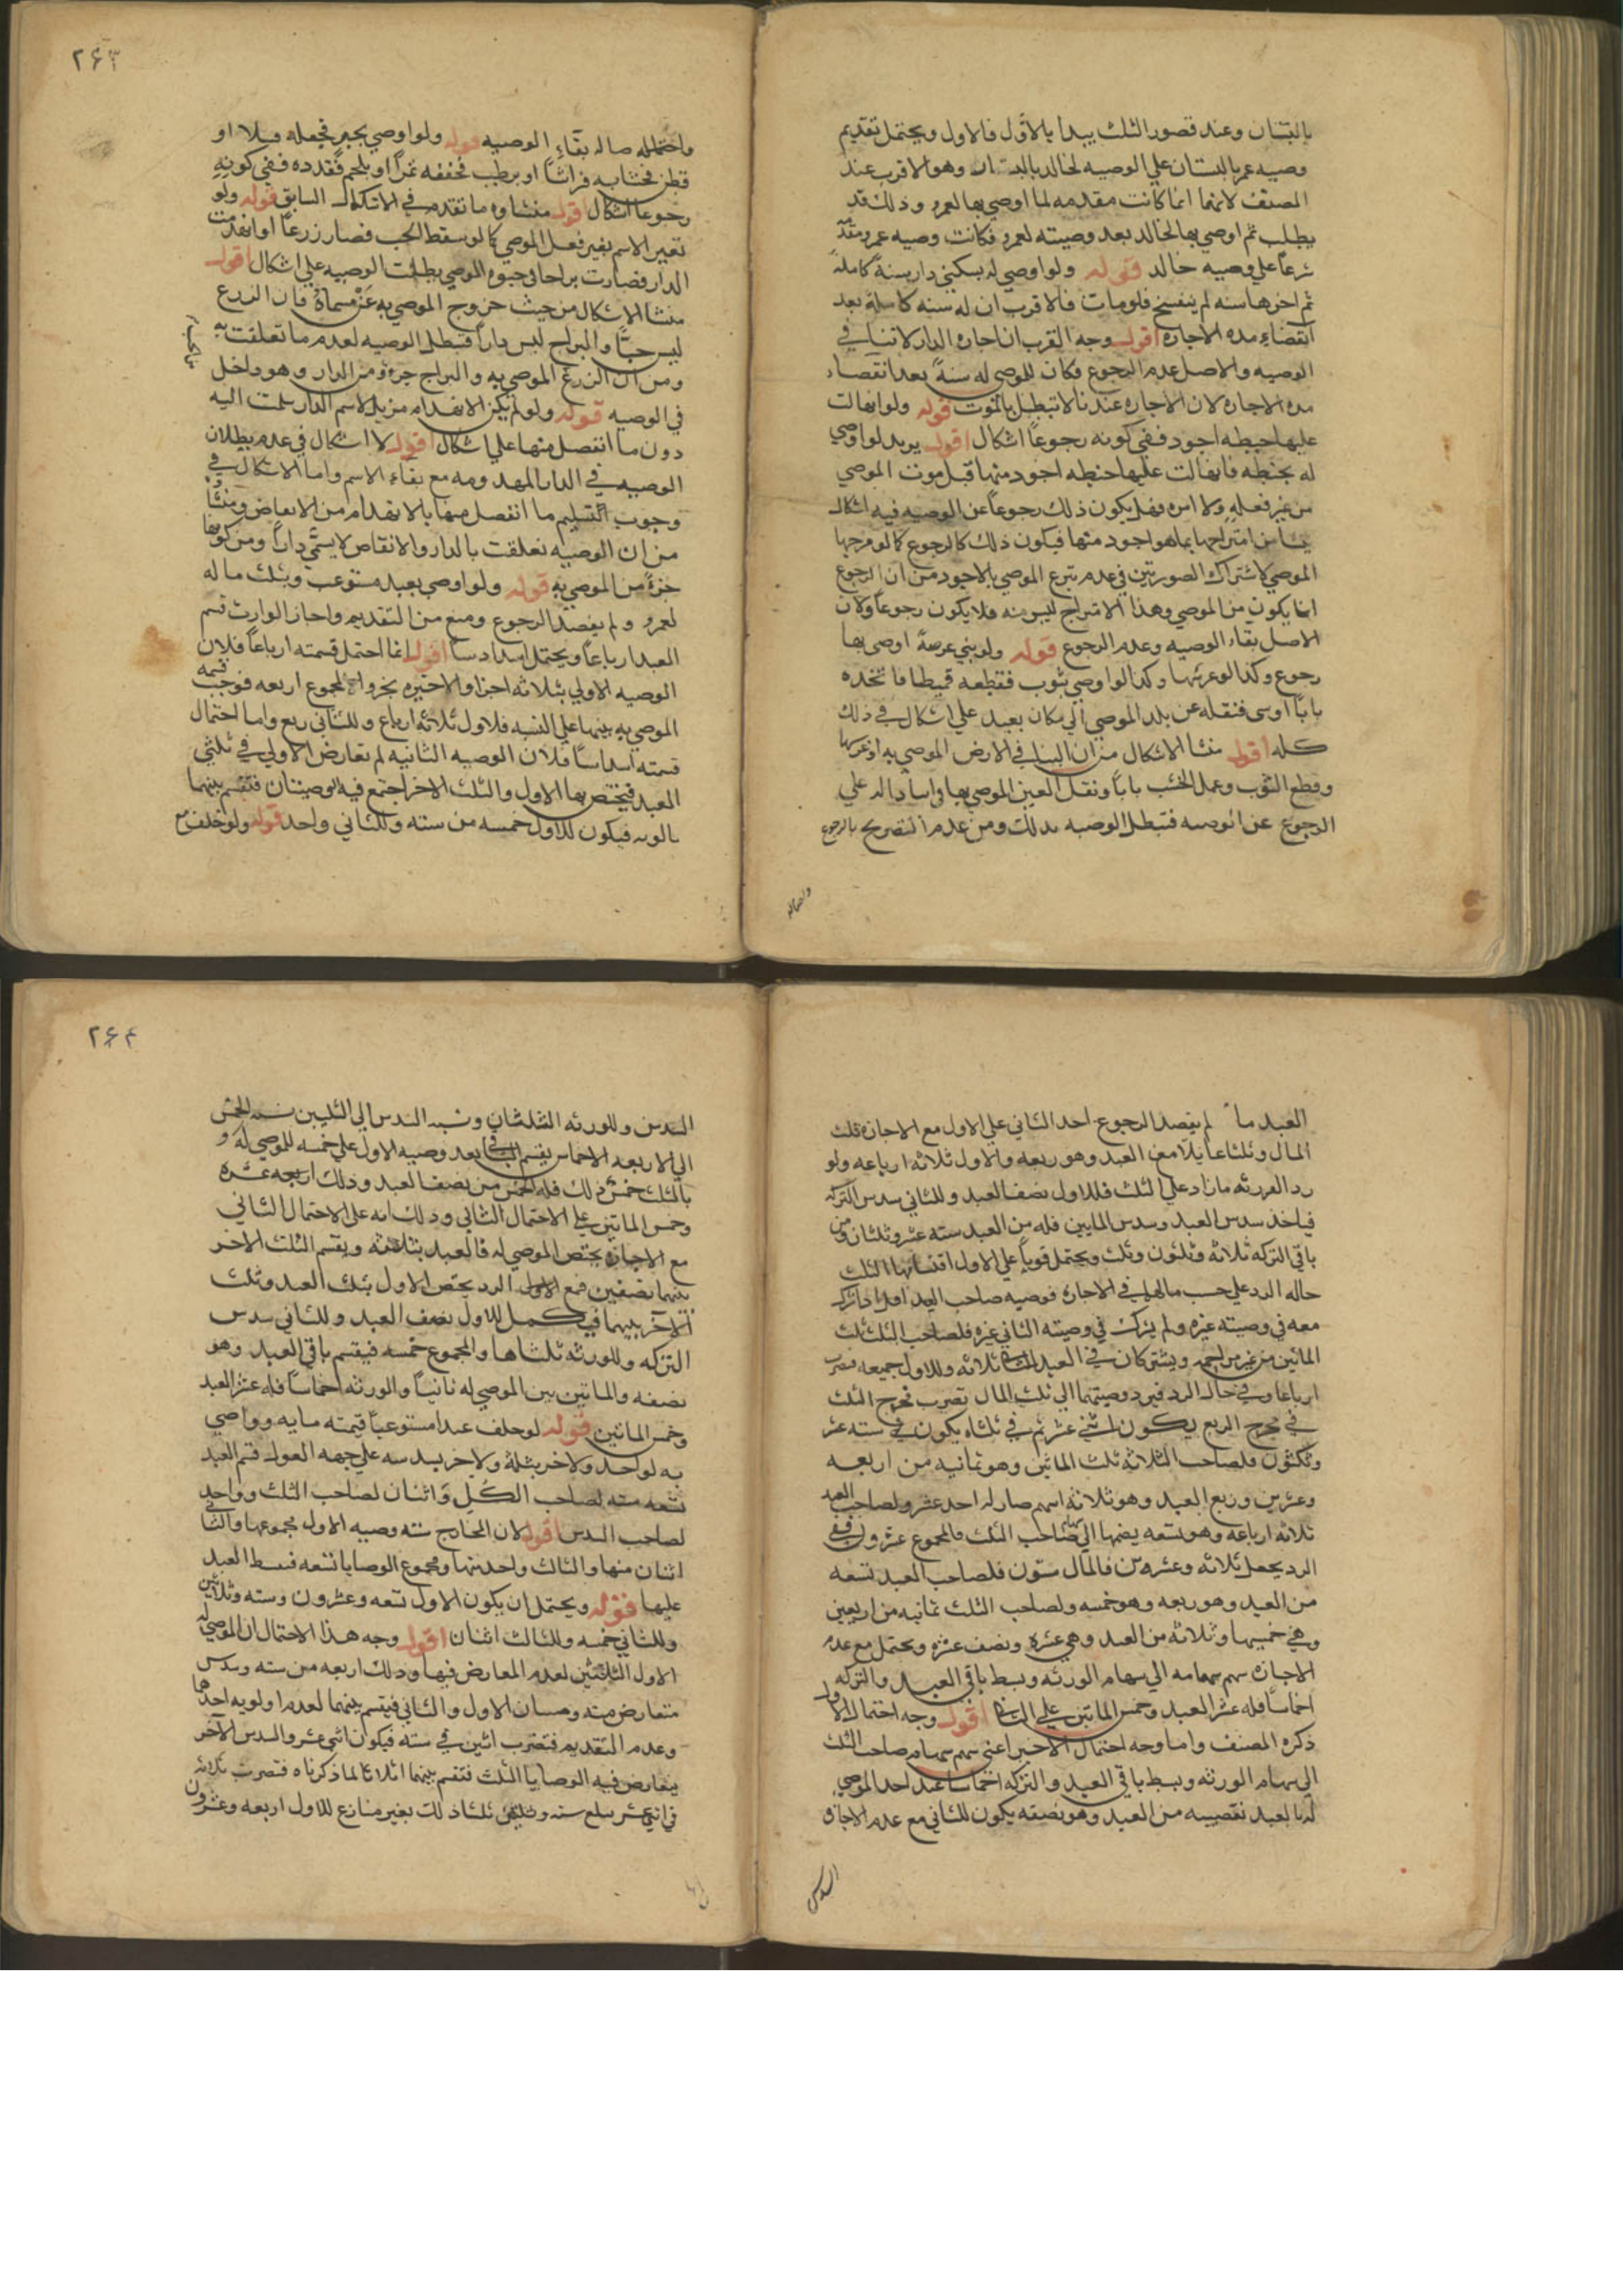 بالبستان وعند قصور الثلث يبدا بالاول فالاول ويحتمل تقديم
وصيه عمر بالبستان علي الوصيه لخالد بالبستان وهو الاقرب عند
المصنف لانها انما كانت مقدمه لما اوصي بها لعمرو وذلك قد
بطلب ثم اوصي بها لخالد بعد وصيته لعمرو فكانت وصيه عمرو مقدمه
شرعا علي وصيه خالد قوله ولو اوصي له بسكني دار سنة كاملة
ثم اجرها سنه لم ينفسخ فلو مات فالاقرب ان له سنه كاملة بعد
انقضاء مده الاجاره اقول وجه القرب ان اجاره الدار لا تنافي
الوصيه والاصل عدم الرجوع فكان للموصي له سنة بعد انقضاء
مده الاجاره لان الاجاره عندنا لا تبطل بالموت قوله ولو انهالت
عليها حنطه اجود ففي كونه رجوعا اشكال اقول يريد لو اوصي
له بحنطه فانهالت عليها حنطه اجود منها قبل موت الموصي
من غير فعله ولا امره فهل يكون ذلك رجوعا عن الوصيه فيه اشكال
ينشا من امتزاجها بما هو اجود منها فيكون ذلك كالرجوع كما لو مزجها
الموصي لاشتراك الصورتين في عدم تبرع الموصي بالاجود من ان الرجوع
انما يكون من الموصي وهذا الامتزاج ليس منه فلا يكون رجوعا ولان
الاصل بقاء الوصيه وعدم الرجوع قوله ولو بني عرصة اوصي بها
رجوع وكذا لو غرسها وكذا لو اوصي بثوب فقطعه قميصا فاتخذه
بابا اوسي فنقله عن بلد الموصي الي مكان بعيد علي اشكال في ذلك
كله اقول منشا الاشكال من ان البنا في الارض الموصي به او غرسها
وقطع الثوب وعمل الخشب بابا ونقل العين الموصي بها امارات داله علي
الرجوع عن الوصيه فتبطل الوصيه بذلك ومن عدم التصريح بالرجوع
واصاله
٢٦٣
واحتماله صاله بقاء الوصيه قوله ولو اوصي بخبز فجعله فتيلا او
قطن فحشا به فراشا او برطب فجففه تمرا او بلحم فقدده ففي كونه
رجوعا اشكال اقول منشاوه ما تقدم في الاشكال السابق قوله ولو
تغير الاسم بغير فعل الموصي كما لو سقط الحب فصار زرعا او انهدمت
الدار فصارت براحا في حيوه الموصي بطلت الوصيه علي اشكال اقول
منشا الاشكال من حيث خروج الموصي به عن مسماه فان الزرع
ليس حبا والبراح ليس دارا فتبطل الوصيه لعدم ما تعلقت به
ومن ان الزرع الموصي به والبراح جزء من الدار وهو داخل
في الوصيه قوله ولو لم يكن الانهدام مزيلا لاسم الدار سلمت اليه
دون ما انفصل منها علي اشكال اقول لا اشكال في عدم بطلان
الوصيه في الدار المهدومه مع بقاء الاسم واما الاشكال في
وجوب تسليم ما انفصل منها بالانهدام من الابعاض ومنشا
من ان الوصيه تعلقت بالدار والانقاض لا يسمي دارا ومن كونها
جزء من الموصي به قوله ولو اوصي بعبد مستوعب وبثلث ماله
لعمرو ولم يقصد الرجوع ومنع من التقديم واجاز الوارث قسم
العبد ارباعا ويحتمل اسداسا اقول انما احتمل قسمته ارباعا فلان
الوصيه الاولي بثلاثه اجزا والاخيره بجزء والمجموع اربعه فوجب قسمه
الموصي به بينهما علي النسبه فللاول ثلاثه ارباع وللثاني ربع واما احتمال
قسمته اسداسا فلان الوصيه الثانيه لم تعارض الاولي في ثلثي
العبد فيختص بها الاول والثلث الاخر اجتمع فيه الوصيتان فتقسم بينهما
بالسويه فيكون للاول خمسه من سته وللثاني واحد قوله ولو خلف مع
العبد ما لم يقصد الرجوع احد الثاني علي الاول مع الاجازه ثلث
المال وثلثا عايلا مع العبد وهو ربعه والاول ثلاثه ارباعه ولو
رد الورثه ما زاد علي الثلث فللاول نصف العبد وللثاني سدس التركه
فياخذ سدس العبد وسدس المايتين فله من العبد سته عشر وثلثان ومن
باقي التركه ثلاثه وثلثون وثلث ويحتمل قويا علي الاول اقتسامهما الثلث
حاله الرد علي حسب مالهما في الاجازه فوصيه صاحب العبد
معه في وصيته غيره ولم يزل في وصيته الثاني غيره فلصاحب الثلث ثلث
المائتين من غير مزاحمه ويشتركان في العبد للثاني ثلاثه وللاول جميعه فصرت
ارباعا وفي حال الرد فيرد وصيتهما الي ثلث المال تضرب مخرج الثلث
في مخرج الربع يكون اثني عشر ثم في ثلاثه يكون سته عشر
وثلثون فلصاحب الثلاثه ثلث المائتين وهو ثمانيه من اربعه
وعشرين وربع العبد وهو ثلاثه اسهم صار له احد عشر ولصاحب العبد
ثلاثه ارباعه وهو تسعه يضمها الي سهام صاحب الثلث فالمجموع عشرون ففي
الرد يجعل ثلاثه وعشرين فالمال ستون فلصاحب العبد تسعه
من العبد وهو ربعه وهو خمسه ولصاحب الثلث ثمانيه من اربعين
وهي خمسها وثلاثه من العبد وهي عشره ونصف عشره ويحتمل مع عدم
الاجازه سهم سهامه الي سهام الورثه وبسط باقي العبد والتركه
اخماسا فله عشر العبد وخمس المائتين علي الثاني اقول وجه احتمال الاول
ذكره المصنف واما وجه احتمال الاخير اعني سهم سهام صاحب الثلث
الي سهام الورثه وبسط باقي العبد والتركه اخماسا عند احد الموصي
له بالعبد نصيبه من العبد وهو نصفه يكون للثاني مع عدم الاجازه
السدس
٢٦٤
السدس وللورثه الثلثان ونسبه السدس الي الثلثين نسبه الخمس
الي الاربعه الاخماس يقسم الباقي بعد وصيه الاول علي خمسه للموصي له و
بالثلث خمس ذلك فله الخمس من نصف العبد وذلك اربعه عشره
وخمس المائتين علي الاحتمال الثاني وذلك انه علي الاحتمال الثاني
مع الاجازه يختص الموصي له فالعبد بثلاثه ويقسم الثلث الاخر
بينهما نصفين فمع الرد يختص الاول بثلث العبد وثلث
الاخر بينهما فيكمل للاول نصف العبد وللثاني سدس
التركه وللورثه ثلثاها والمجموع خمسه فيقسم باقي العبد وهو
نصفه والمائتين بين الموصي له ثانيا والورثه اخماسا فله عشر العبد
وخمس المائتين قوله لو خلف عبدا مستوعبا قيمته مايه وواصي
به لواحد ولاخر بثلثه ولاخر بسدسه علي جهه العول قسم العبد
تسعه سته لصاحب الكل واثنان لصاحب الثلث وواحد
لصاحب السدس اقول لان المخارج سته وصيه الاول مجموعها والثاني
اثنان منها والثالث واحد منها ومجموع الوصايا تسعه فبسط العبد
عليها قوله ويحتمل ان يكون الاول تسعه وعشرون وسته وثلاثين
وللثاني خمسه وللثالث اثنان اقول وجه هذا الاحتمال ان الموصي له
الاول الثلاثين لعدم المعارض فيها وذلك اربعه من سته وسدس
متعارض فيه وصيتان الاول والثاني فيقسم بينهما لعدم اولويه احدهما
وعدم التقديم فتضرب اثنين في سته فيكون اثني عشر والسدس الاخر
يتعارض فيه الوصايا الثلث فتقسم بينهما اثلاثا لما ذكرناه فتضرب ثلاثه
في اثني عشر يبلغ سته وثلثين ثلثا ذلك بغير منازع للاول اربعه وعشرون